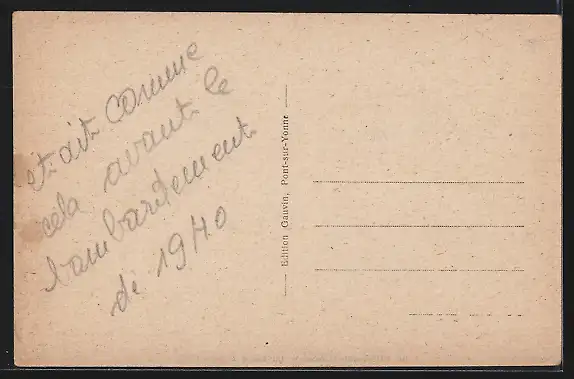 était comme
cela avant le
bambardement
de 1940
Edition Gauvin, Pont-sur-Yonne